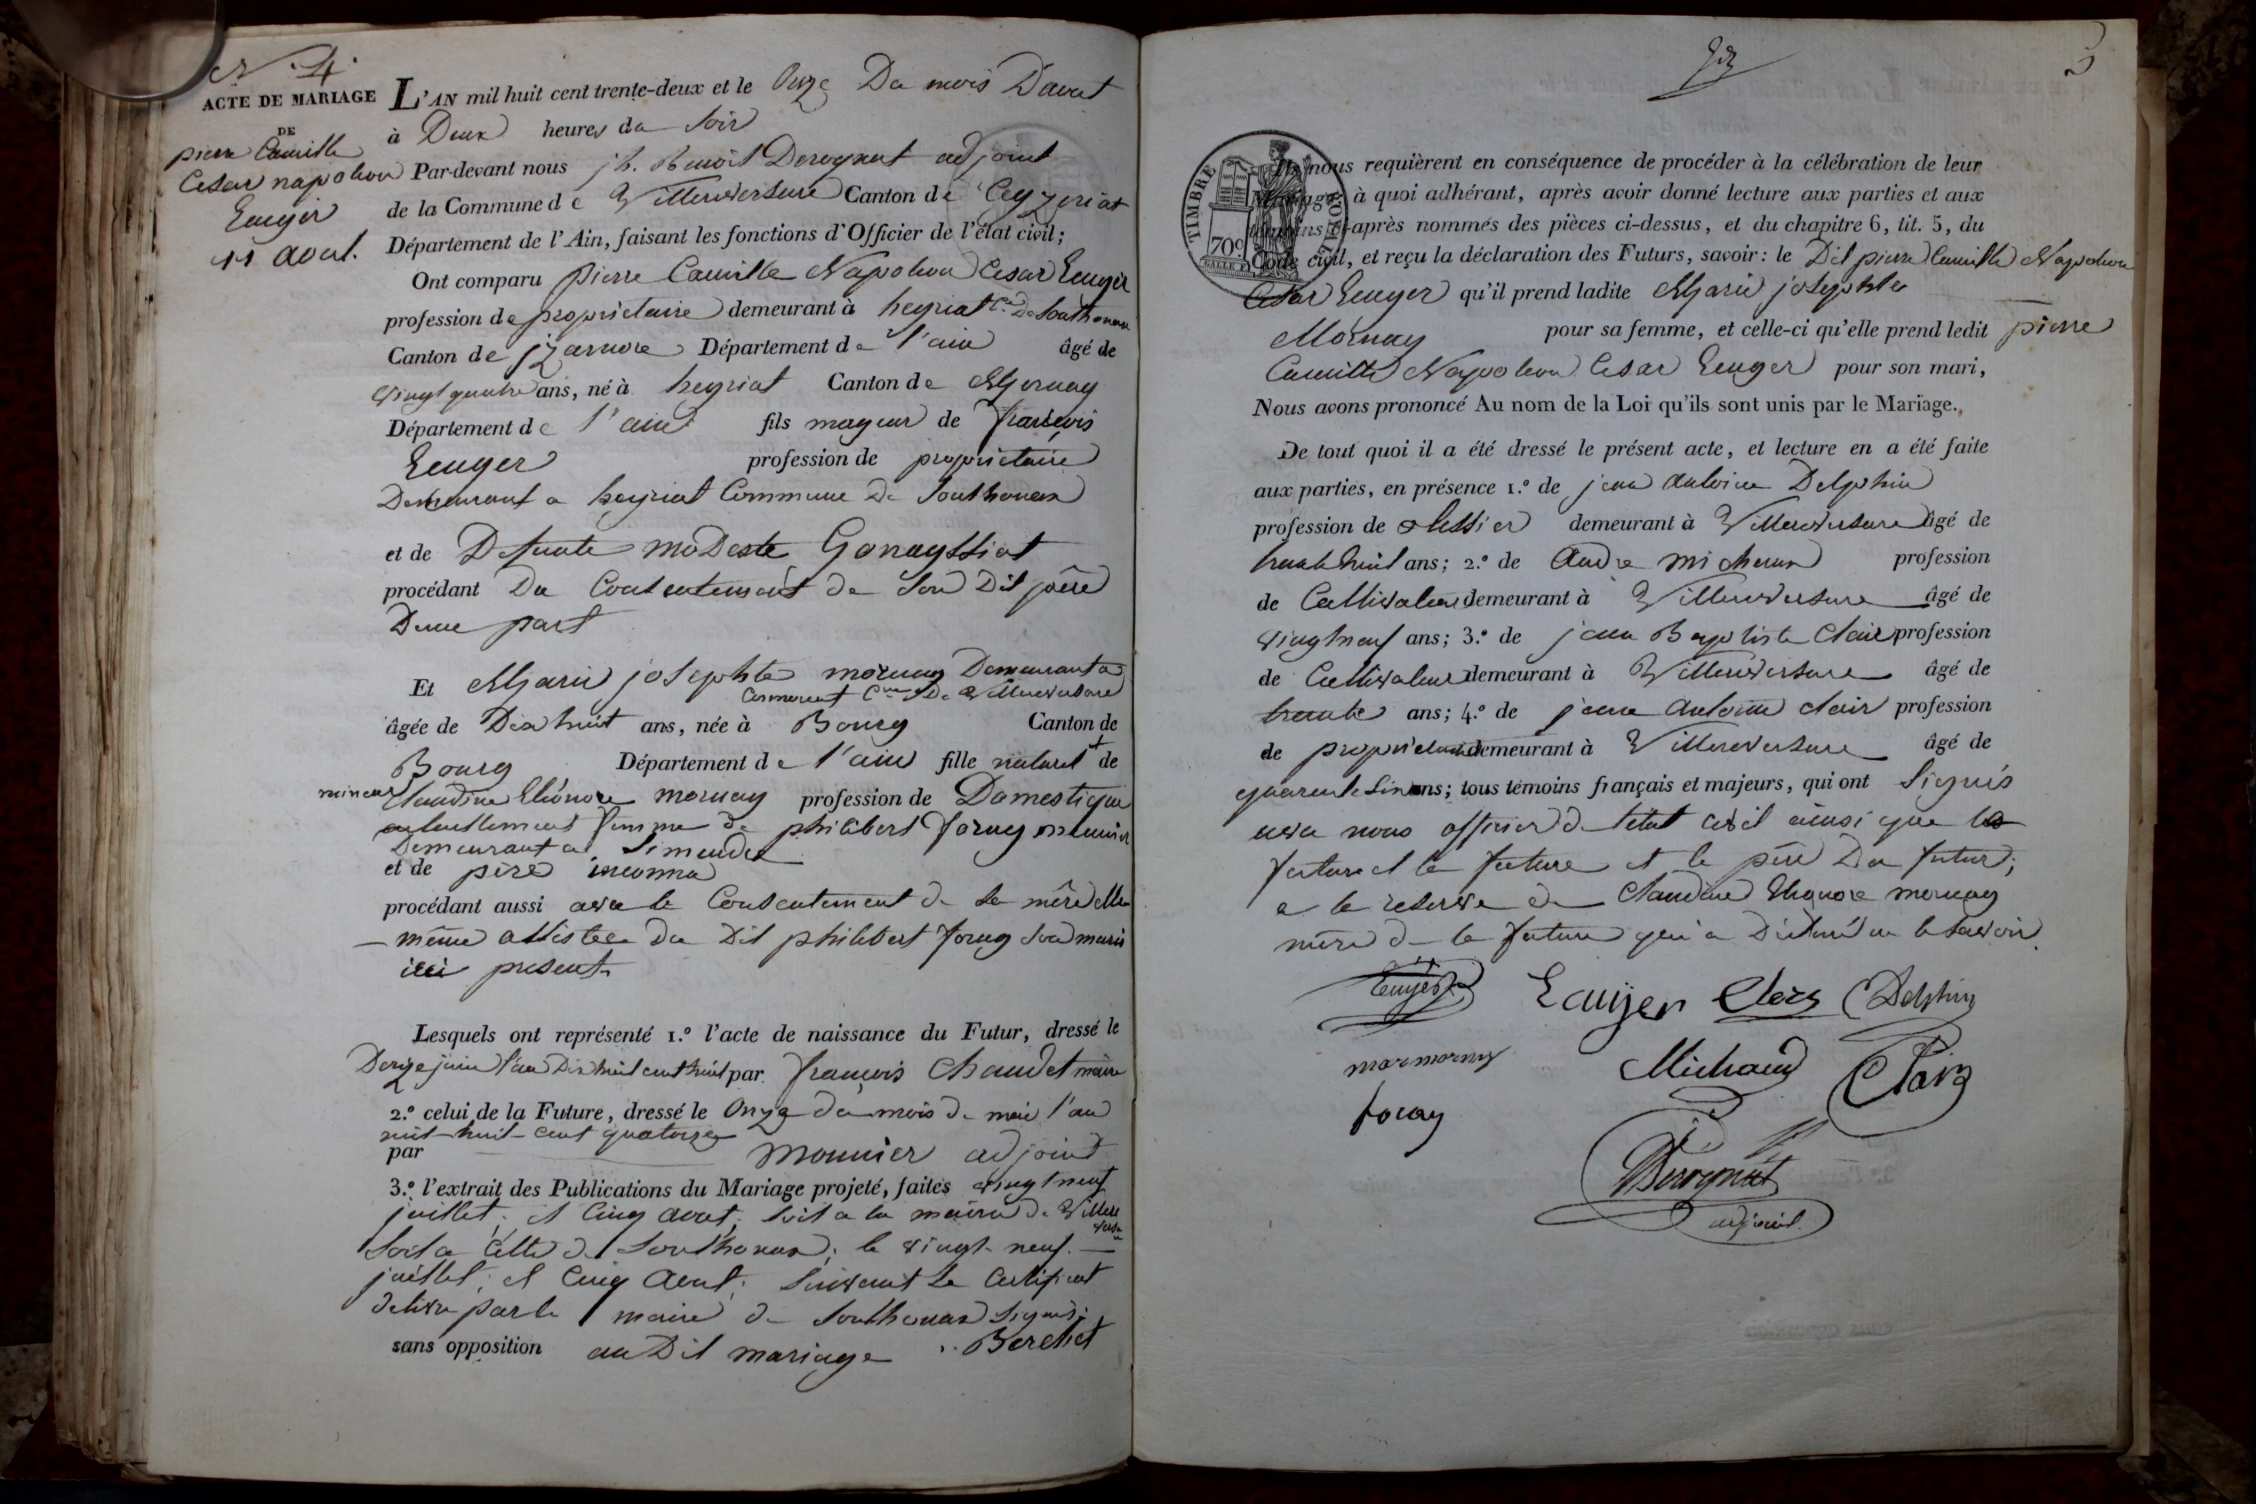 N° 4.
ACTE DE MARIAGE
DE
pierre Camille
Cesar napoleon
Euuger
11 aout.
L'AN mil huit cent trente-deux et le Onze Du mois D'aout
à Deux heures du Soir
Par-devant nous jh. Benoit Derognat adjoint
de la Commune de Villereversure Canton de Ceyzeriat
Département de l'Ain, faisant les fonctions d'Officier de l'état civil;
Ont comparu pierre Camille Napoleon Cesar Euuger
profession de proprietaire demeurant à heyriat Cne De Sonthonnax
Canton de jzarnore Département de l'ain âgé de
vingt quatre ans, né à heyriat Canton de
Département de l'ain fils mageur de francois
Euuger profession de proprietaire
Demeurant a heyriat Commune De Sonthonax
et de Defunte modeste Gonayssiat
procédant Du Contentement de Son Dit père
Dune part
Et Marie josephte mornay Demeurant a
Cormorent Cne De Villereversure
âgée de Dix huit ans, née à Bourg Canton de
Bourg Département de l'ain fille naturel + de
mineur
Claudine Eléonore mornay profession de Domestique
actuellement femme de philibert foray meunier
Demeurant a Simandre
et de père inconnu
procédant aussi avec le Contentement de Sa mère elle
même assistée du Dit philibert foray Son maris
ici present
Lesquels ont représenté 1.º l'acte de naissance du Futur, dressé le
Douze juin l'an Dix huit cent huit par françois Chaudet maire
2.º celui de la Future, dressé le Onze du mois de mai l'an
mil-huit-cent quatorze
par mounier adjoint
3.º l'extrait des Publications du Mariage projeté, faites vingt neuf
juillet, et Cinq aout, Soit a la mairie de Villere
versure
Soit a Celle de Sonthonax, le vingt-neuf.
juillet, et Cinq Aout, Suivant le Certificat
delivré par le maire de Sonthonax Signé:
sans opposition au Dit mariage Berchet
3
TIMBRE ROYAL
70c
Ils nous requièrent en conséquence de procéder à la célébration de leur
Mariage, à quoi adhérant, après avoir donné lecture aux parties et aux
témoins ci-après nommés des pièces ci-dessus, et du chapitre 6, tit. 5, du
Code civil, et reçu la déclaration des Futurs, savoir: le Dit pierre Camille Napoleon
Cesar Euuger qu'il prend ladite Marie josephte
Mornay pour sa femme, et celle-ci qu'elle prend ledit pierre
Camille Napoleon Cesar Euuger pour son mari,
Nous avons prononcé Au nom de la Loi qu'ils sont unis par le Mariage.
De tout quoi il a été dressé le présent acte, et lecture en a été faite
aux parties, en présence 1.º de jean Antoine Delphin
profession de demeurant à Villereversure âgé de
trente huit ans; 2.º de Andre michoux profession
de Cultivateur demeurant à Villereversure âgé de
vingt neuf ans; 3.º de jean Baptiste Clair profession
de Cultivateur demeurant à Villereversure âgé de
trente ans; 4.º de jean Antoine Clair profession
de proprietaire demeurant à Villereversure âgé de
quarante Six ans; tous témoins français et majeurs, qui ont Signés
avec nous officier de letat civil ainsi que le
futur et la future et le père Du futur;
a la reserve de Claudine Elионore mornay
mère de la future qui a Déclaré ne le Savoir.
Euuger Clerc Delphin
mornay Michoud Clair
foray
Derognat
adjoint.